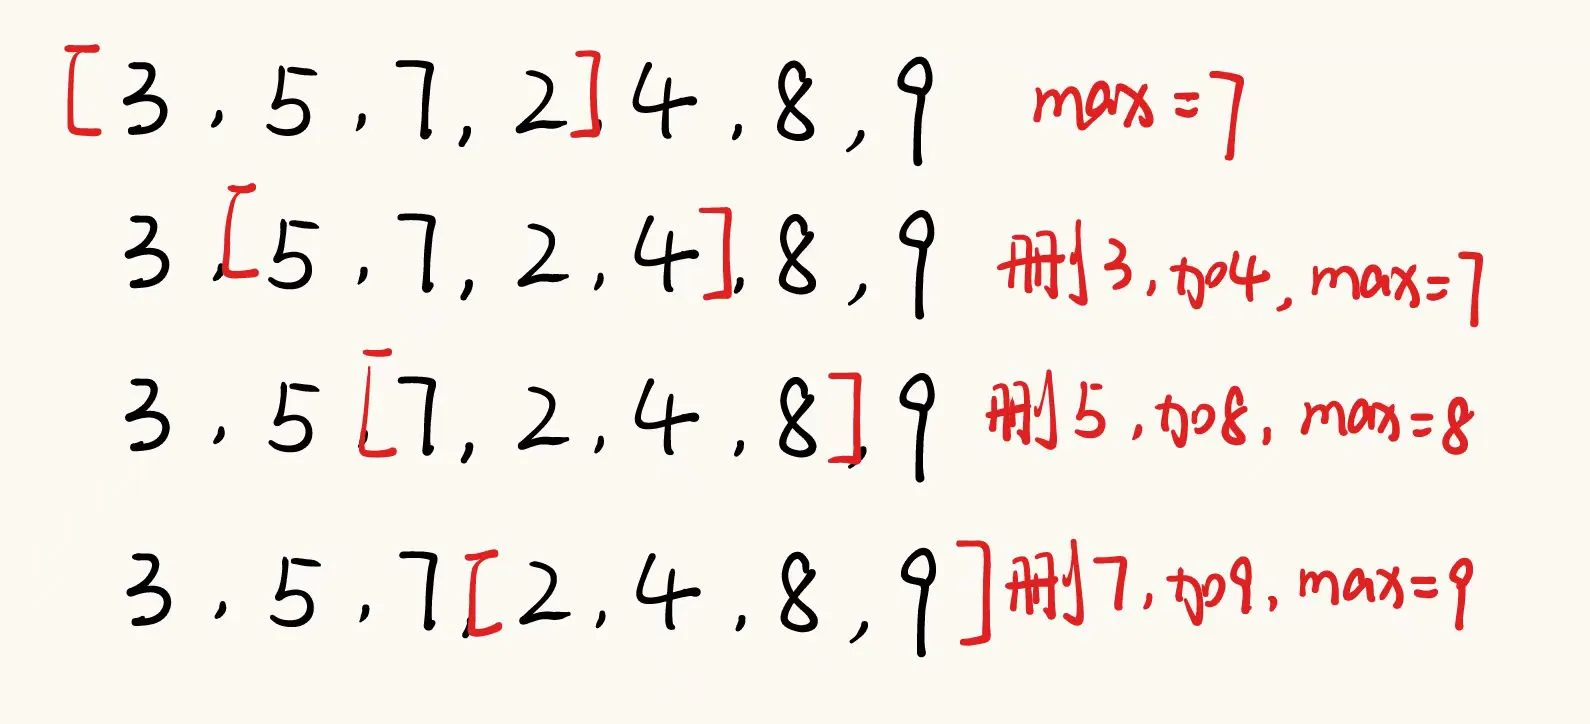 [3, 5, 7, 2], 4, 8, 9 max=7
3, [5, 7, 2, 4], 8, 9 删3, 加4, max=7
3, 5, [7, 2, 4, 8], 9 删5, 加8, max=8
3, 5, 7, [2, 4, 8, 9] 删7, 加9, max=9